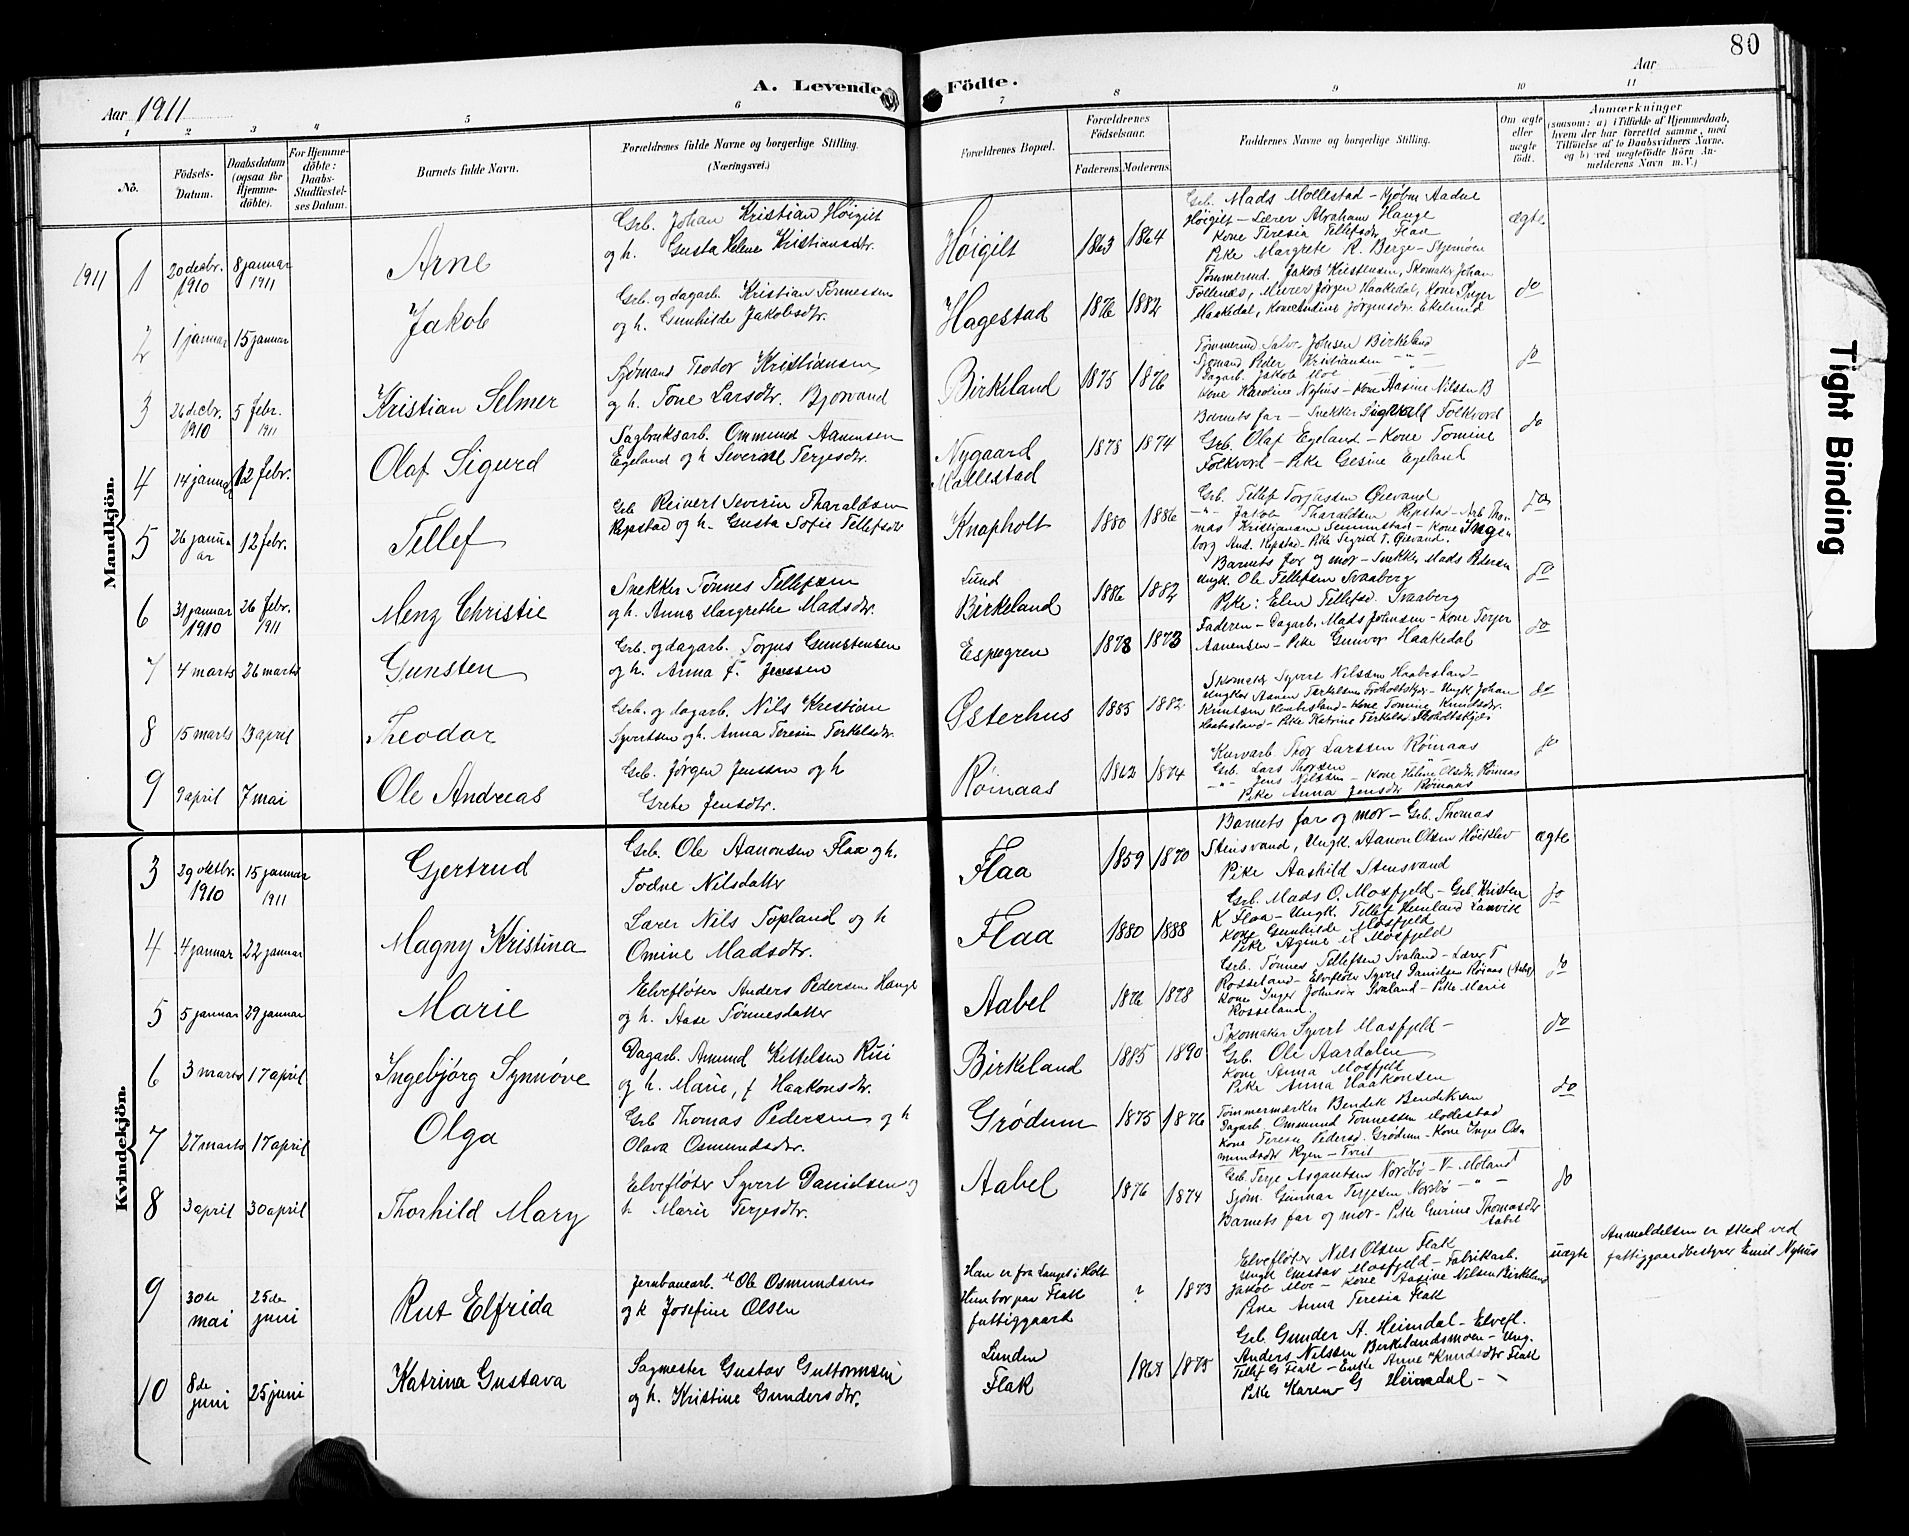 80
A. Levende Födte.
Aar 1911
Aar
1 2 3 4 5 6 7 8 9 10 11
No.
Födsels-
Datum.
Daabsdatum
(ogsaa for
Hjemme-
döbte).
For Hjemme-
döbte:
Daabs-
Stadfæstel-
ses Datum.
Barnets fulde Navn.
Forældrenes fulde Navne og borgerlige Stilling.
(Næringsvei.)
Forældrenes Bopæl.
Forældrenes
Födselsaar.
Faderens. Moderens.
Faddernes Navne og borgerlige Stilling.
Om ægte
eller
uægte
født.
Anmærkninger
(saasom: a) i Tilfælde af Hjemmedaab,
hvem der har forrettet samme, med
Tilföielse af to Daabsvidners Navne,
og b) ved uægtefödte Börn An-
melderens Navn m. V.)
Mandkjön.
1911 1 20 decbr. 1910 8 januar 1911 Arne
Grb. Johan Kristian Höigilt
og h. Gusta Helene Kristiansdtr.
Höigilt 1863 1864
Grb. Mads Mollestad - Kjøbm Aadne
Höigilt - Lærer Abraham Hauge
Kone Teresia Tellefsdtr Flaa
Pike Margrete R. Berge - Stjemoen
ægte
2 1 januar 15 januar Jakob
Grb. og dagarb. Kristian Tønnessen
og h. Gunhilde Jakobsdtr.
Hagestad 1876 1882
Tømmermd. Jakob Kristensen, Skomaker Johan
Follenæs, Murer Jørgen Haakedal, Kone Inger
Haakedal, Kone Andine Jörgensdtr. Ekelund
do
3 26 decbr. 1910 5 febr. 1911 Kristian Selmer
Sjømand Teodor Kristiansen
og h. Tone Larsdtr. Bjorvand
Birkeland 1875 1876
Tømmermd Salve Johsen Birkeland
Sjømand Peder Kristiansen - " -
Dagarb. Jakob Moe - " -
Kone Karoline Nyhus - Kone Aasine Nilssen B
do
4 14 januar 12 febr. Olaf Sigurd
Sagbruksarb. Ommund Aanensen
Egeland og h Severine Terjesdtr.
Nygaard
Mollestad 1878 1874
Barnets far - Snekker Sigvald Folkvord
Grb. Olaf Egeland - Kone Tomine
Folkvord - Pike Gesine Egeland
do
5 26 januar 12 febr. Tellef
Grb Reinert Severin Tharaldsen
Repstad og h. Gusta Sofie Tellefsdtr
Knapholt 1880 1886
Grb. Tellef Torjussen Øievand
- " - Jakob Tharaldsen Repstad - Arb. Tho-
mas Kristiansen Senumstad - Kone Inge-
borg And. Repstad - Pike Sigrid T. Øievand.
do
6 31 januar 1910 26 febr. 1911 Menz Christie
Snekker Tønnes Tellefsen
og h. Anna Margrethe Madsdtr.
Lund
Birkeland 1886 1882
Barnets far og mor - Snekker Mads Pedersen
Ungk. Ole Tellefsen Svaaberg
Pike: Elen Tellefsd. Svaaberg
do
7 4 marts 26 marts Gunsten
Grb. og dagarb. Torjus Gunstensen
og h. Anna F. Jenssen
Espegren 1878 1873
Faderen - Dagarb. Mads Johnsen - Kone Terjer
Aanensen - Pike Gunvor Haakedal
do
8 15 marts 23 april Theodor
Grb. og dagarb. Nils Kristian
Syvertsen og h. Anna Teresie Terkelsdtr.
Østerhus 1885 1882
Skomaker Syvert Nilssen Haabesland -
Ungkar Aanen Terkelsen Froholtskjær - Ungk Johan
Knutsen Haabesland - Kone Tomine Knudsdtr.
Haabesland - Pike Katrine Terkelsd Froholtskjær
do
9 9 april 7 mai Ole Andreas
Grb. Jørgen Jenssen og h
Grete Jensdtr.
Røinaas 1862 1874
Kurvarb. Thor Larssen Røinaas
Grb. Lars Thorsen
- " - Jens Nilssen - Kone Helene Olsdtr. Røinaas
Pike Anna Jensdtr Røinaas
do
Kvindekjön.
3 29 oktbr. 1910 15 januar 1911 Gjertrud
Grb. Ole Aanonsen Flaa og h.
Todne Nilsdatter
Flaa 1859 1870
Barnets far og mor - Grb. Thomas
Stensvand, Ungk. Aanon Olsen Höieklev
Pike Aashild Stensvand
ægte
4 4 januar 22 januar Magny Kristina
Lærer Nils Topland og h
Omine Madsdtr.
Flaa 1880 1888
Grb. Mads O. Mosfjeld - Grb. Kristen
K Flaa - Ungk. Tellef Heimland Landvik
Kone Gunhilde Mosfjeld
Pike Agine M Mosfjeld
do
5 5 januar 29 januar Marie
Elvefløter Anders Pedersen Hauge
og h. Aase Tønnesdatter
Aabel 1876 1878
Grb. Tønnes Tellefsen Svaland - Lærer T
Rosseland - Elvefløter Syvert Danielsen Røinas (Aabel)
Kone Inger Johnsdtr Svaland - Pike Marie
Rosseland.
do
6 3 marts 17 april Ingebjørg Synnøve
Dagarb. Amund Kittelsen Risi
og h. Marie, f Haakonsdtr.
Birkeland 1885 1890
Skomaker Syvert Mosfjeld -
Grb. Ole Aardalen
Kone Anna Mosfjeld
Pike Anna Haakonsen
do
7 27 marts 17 april Olga
Grb Thomas Pedersen og h
Olava Osmundsdtr.
Grødum 1875 1876
Tømmermærker Bendik Bendiksen
Dagarb. Ommund Tønnessen Mollestad
Kone Teresie Pedersd. Grødum - Kone Inge Os-
mundsdtr Ryen - Tveit
do
8 3 april 30 april Thorhild Mary
Elvefløter Syvert Danielsen og
h Marie Terjesdtr.
Aabel 1876 1874
Grb. Terje Asgautsen Nordbø - V- Moland
Sjøm. Gunnar Terjesen Nordbø - " -
Barnets far og mor - Pike Gurine Thomasdtr
Aabel
do
9 30de mai 25de juni Rut Elfrida
Jernbanearb. Ole Osmundsen
og h Josefine Olsen
Han er fra Langet i Holt
Hun bor paa Flak
fattiggaard ? 1873
Elvefløter Nils Olsen Flak
Ungk Gustav Mosfjeld - Fabrikarb.
Jakob Moe - Kone Aasine Nilsen Birkeland
Pike Anna Teresia Flak
uægte
Anmeldelsen er sked ved
fattiggaardbestyrer Emil Nyhus
10 8de juni 25 juni Katrina Gustava
Sagmester Gustav Guttormsen
og h. Kristine Gundersdtr.
Lunden
Flak 1868 1875
Grb. Gunder A. Heimdal - Elvefl.
Anders Nilssen Birkelandsmoen - Ung.
Tellef G Flak - Enke Anne Knudsdtr Flak
Pike Karen G Heimdal -
Tight Binding